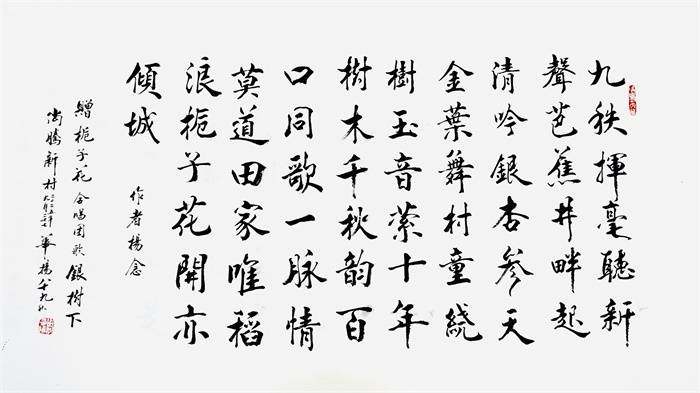 九秩揮毫聽新
聲芭蕉井畔起
清吟銀杏參天
金葉舞村童繞
樹玉音萦十年
樹木千秋韵百
口同歌一脉情
莫道田家唯稻
浪栀子花開亦
傾城
作者楊念
贈栀子花合唱团歌銀樹下
新村